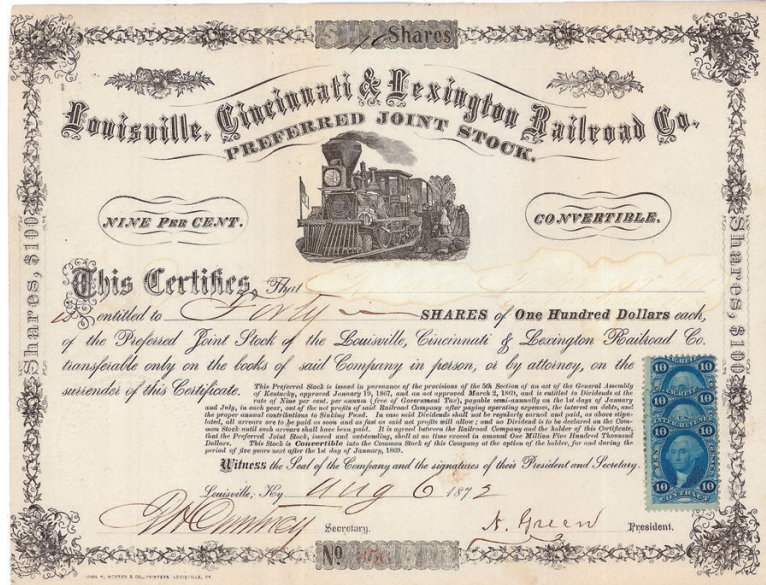 Shares
Louisville, Cincinnati & Lexington Railroad Co.
PREFERRED JOINT STOCK.
NINE PER CENT.
CONVERTIBLE.
Shares, $100
Shares, $100
This Certifies, That
is entitled to Forty SHARES of One Hundred Dollars each,
of the Preferred Joint Stock of the Louisville, Cincinnati & Lexington Railroad Co.
transferable only on the books of said Company in person, or by attorney, on the
surrender of this Certificate.
This Preferred Stock is issued in pursuance of the provisions of the 5th Section of an act of the General Assembly
of Kentucky, approved January 19, 1867, and an act approved March 2, 1869, and is entitled to Dividends at the
rate of Nine per cent. per annum (free of Government Tax), payable semi-annually on the 1st days of January
and July, in each year, out of the net profits of said Railroad Company after paying operating expenses, the interest on debts, and
the proper annual contributions to Sinking Fund. In case said Dividends shall not be regularly earned and paid, as above stipu-
lated, all arrears are to be paid as soon and as fast as said net profits will allow; and no Dividend is to be declared on the Com-
mon Stock until such arrears shall have been paid. It is agreed between the Railroad Company and the holder of this Certificate,
that the Preferred Joint Stock, issued and outstanding, shall at no time exceed in amount One Million Five Hundred Thousand
Dollars. This Stock is Convertible into the Common Stock of this Company at the option of the holder, for and during the
period of five years next after the 1st day of January, 1869.
Witness the Seal of the Company and the signatures of their President and Secretary.
Louisville, Ky. Aug 6 1872
Secretary.
N. Green President.
No
10 10
10 10
10 10
10 10
CONTRACT
JOHN P. MORTON & CO., PRINTERS, LOUISVILLE, KY.